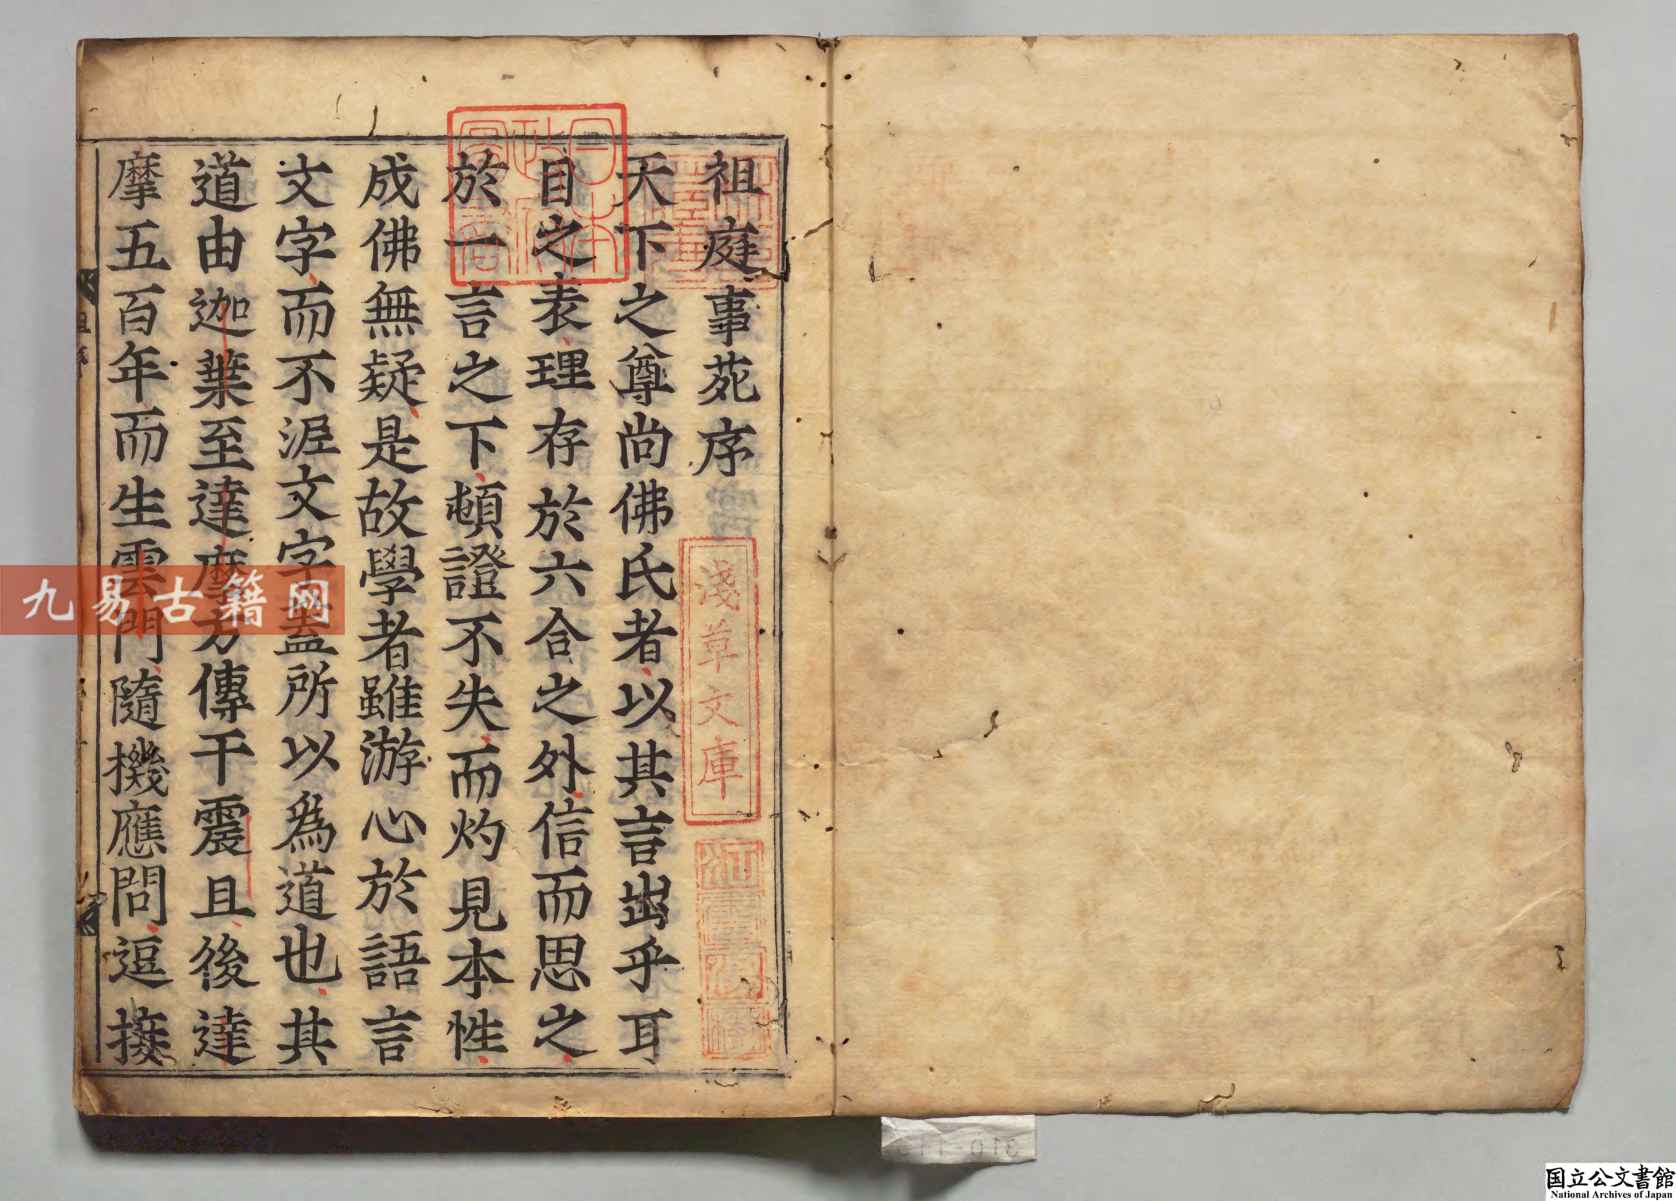 祖庭事苑序
天下之尊尚佛氏者以其言出乎耳
目之表理存於六合之外信而思之
於一言之下頓證不失而灼見本性
成佛無疑是故學者雖游心於語言
文字而不泥文字盖所以爲道也其
道由迦葉至達摩方傳干震旦後達
摩五百年而生雲門隨機應問逗接
日本
淺草文庫
九易古籍网
国立公文書館
National Archives of Japan